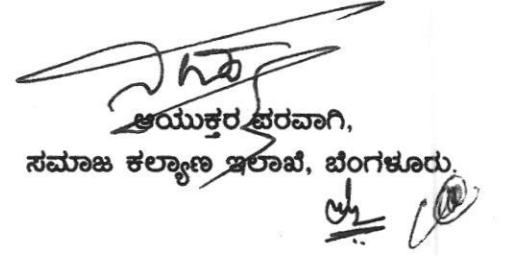 ಆಯುಕ್ತರ ಪರವಾಗಿ,
ಸಮಾಜ ಕಲ್ಯಾಣ ಇಲಾಖೆ, ಬೆಂಗಳೂರು.